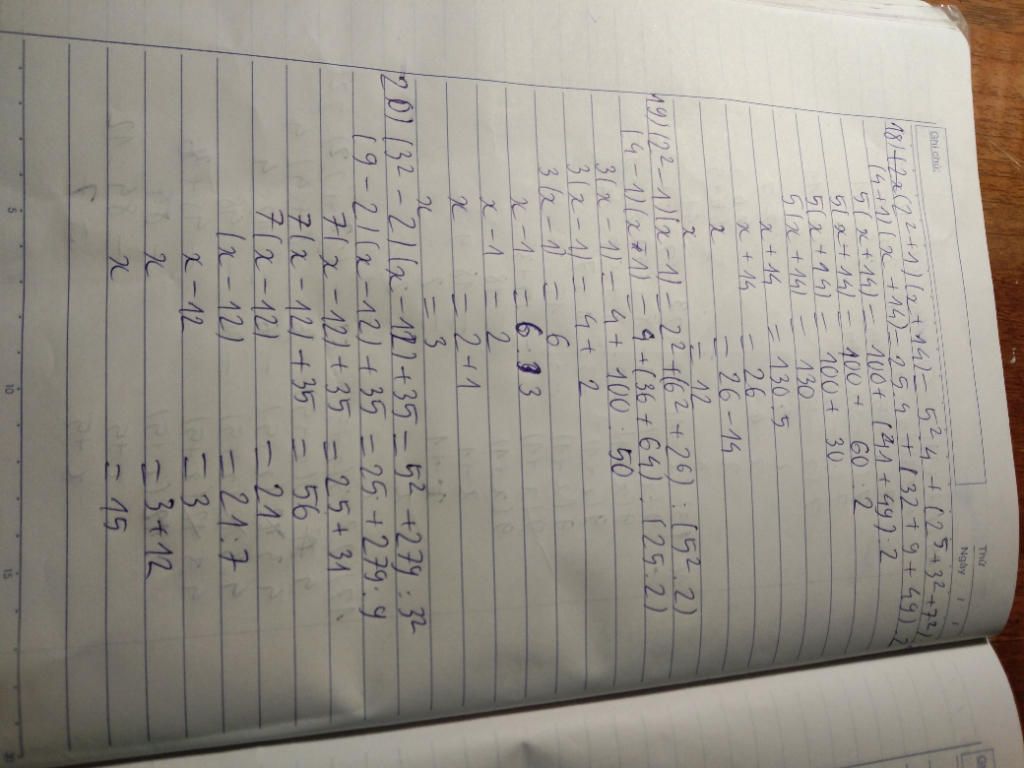 Ghi chúc
Thứ
Ngày
18) (2²+1)(x+14) = 5².4 + (2⁵+3²+7²)
(4+1)(x+14) = 25.4 + (32+9+49) : 2
5(x+14) = 100 + (41+49) : 2
5(x+14) = 100 + 60 : 2
5(x+14) = 100 + 30
5(x+14) = 130
x+14 = 130:5
x+14 = 26
x = 26-14
x = 12
19) (2²-1)(x-1) = 2²+(6²+26) : (5².2)
(4-1)(x-1) = 4+(36+64) : (25.2)
3(x-1) = 4+100 : 50
3(x-1) = 4+2
3(x-1) = 6
x-1 = 6:3
x-1 = 2
x = 2+1
x = 3
20) (3²-2)(x-12)+35 = 5²+279:3²
(9-2)(x-12)+35 = 25+279:9
7(x-12)+35 = 25+31
7(x-12)+35 = 56
7(x-12) = 21
(x-12) = 21:7
x-12 = 3
x = 3+12
x = 15
5
10
15
20